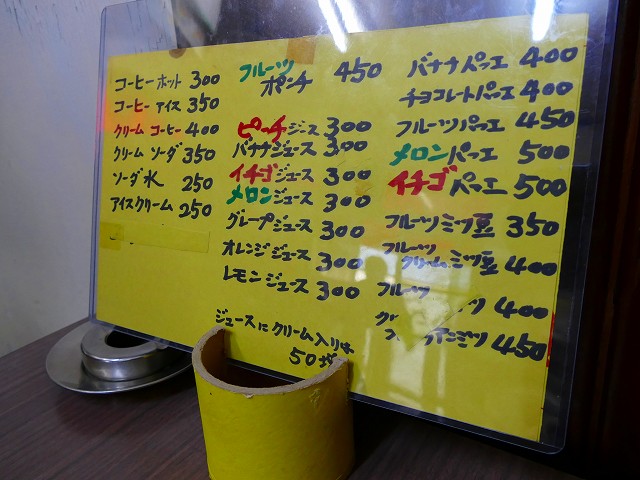 コーヒー ホット 300
コーヒー アイス 350
クリーム コーヒー 400
クリーム ソーダ 350
ソーダ水 250
アイスクリーム 250
フルーツ
ポンチ 450
ピーチジュース 300
バナナジュース 300
イチゴジュース 300
メロンジュース 300
グレープジュース 300
オレンジジュース 300
レモンジュース 300
ジュースにクリーム入りは
50
バナナパフェ 400
チョコレートパフェ 400
フルーツパフェ 450
メロンパフェ 500
イチゴパフェ 500
フルーツミツ豆 350
フルーツ
クリームミツ豆 400
フルーツ
ミツ 400
アンミツ 450